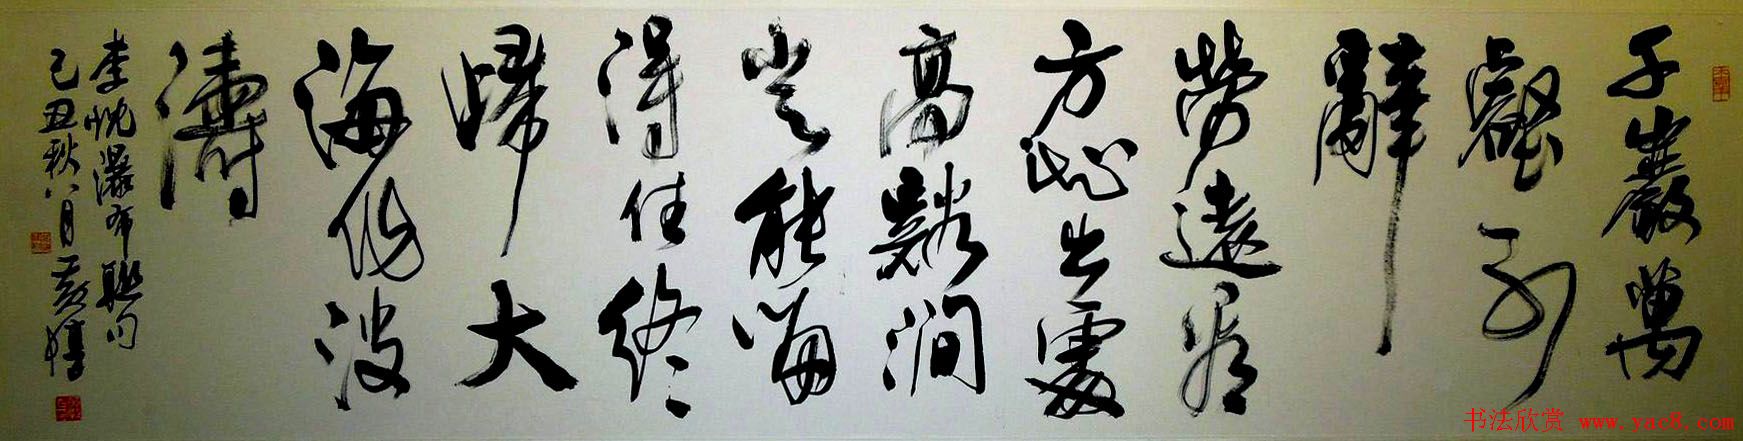 千巖萬
壑不
辭
勞遠看
方知出處
高谿澗
豈能留
得住終
歸大
海作波
濤
李忱瀑布聯句
己丑秋八月黃惇
书法欣赏 www.yac8.com